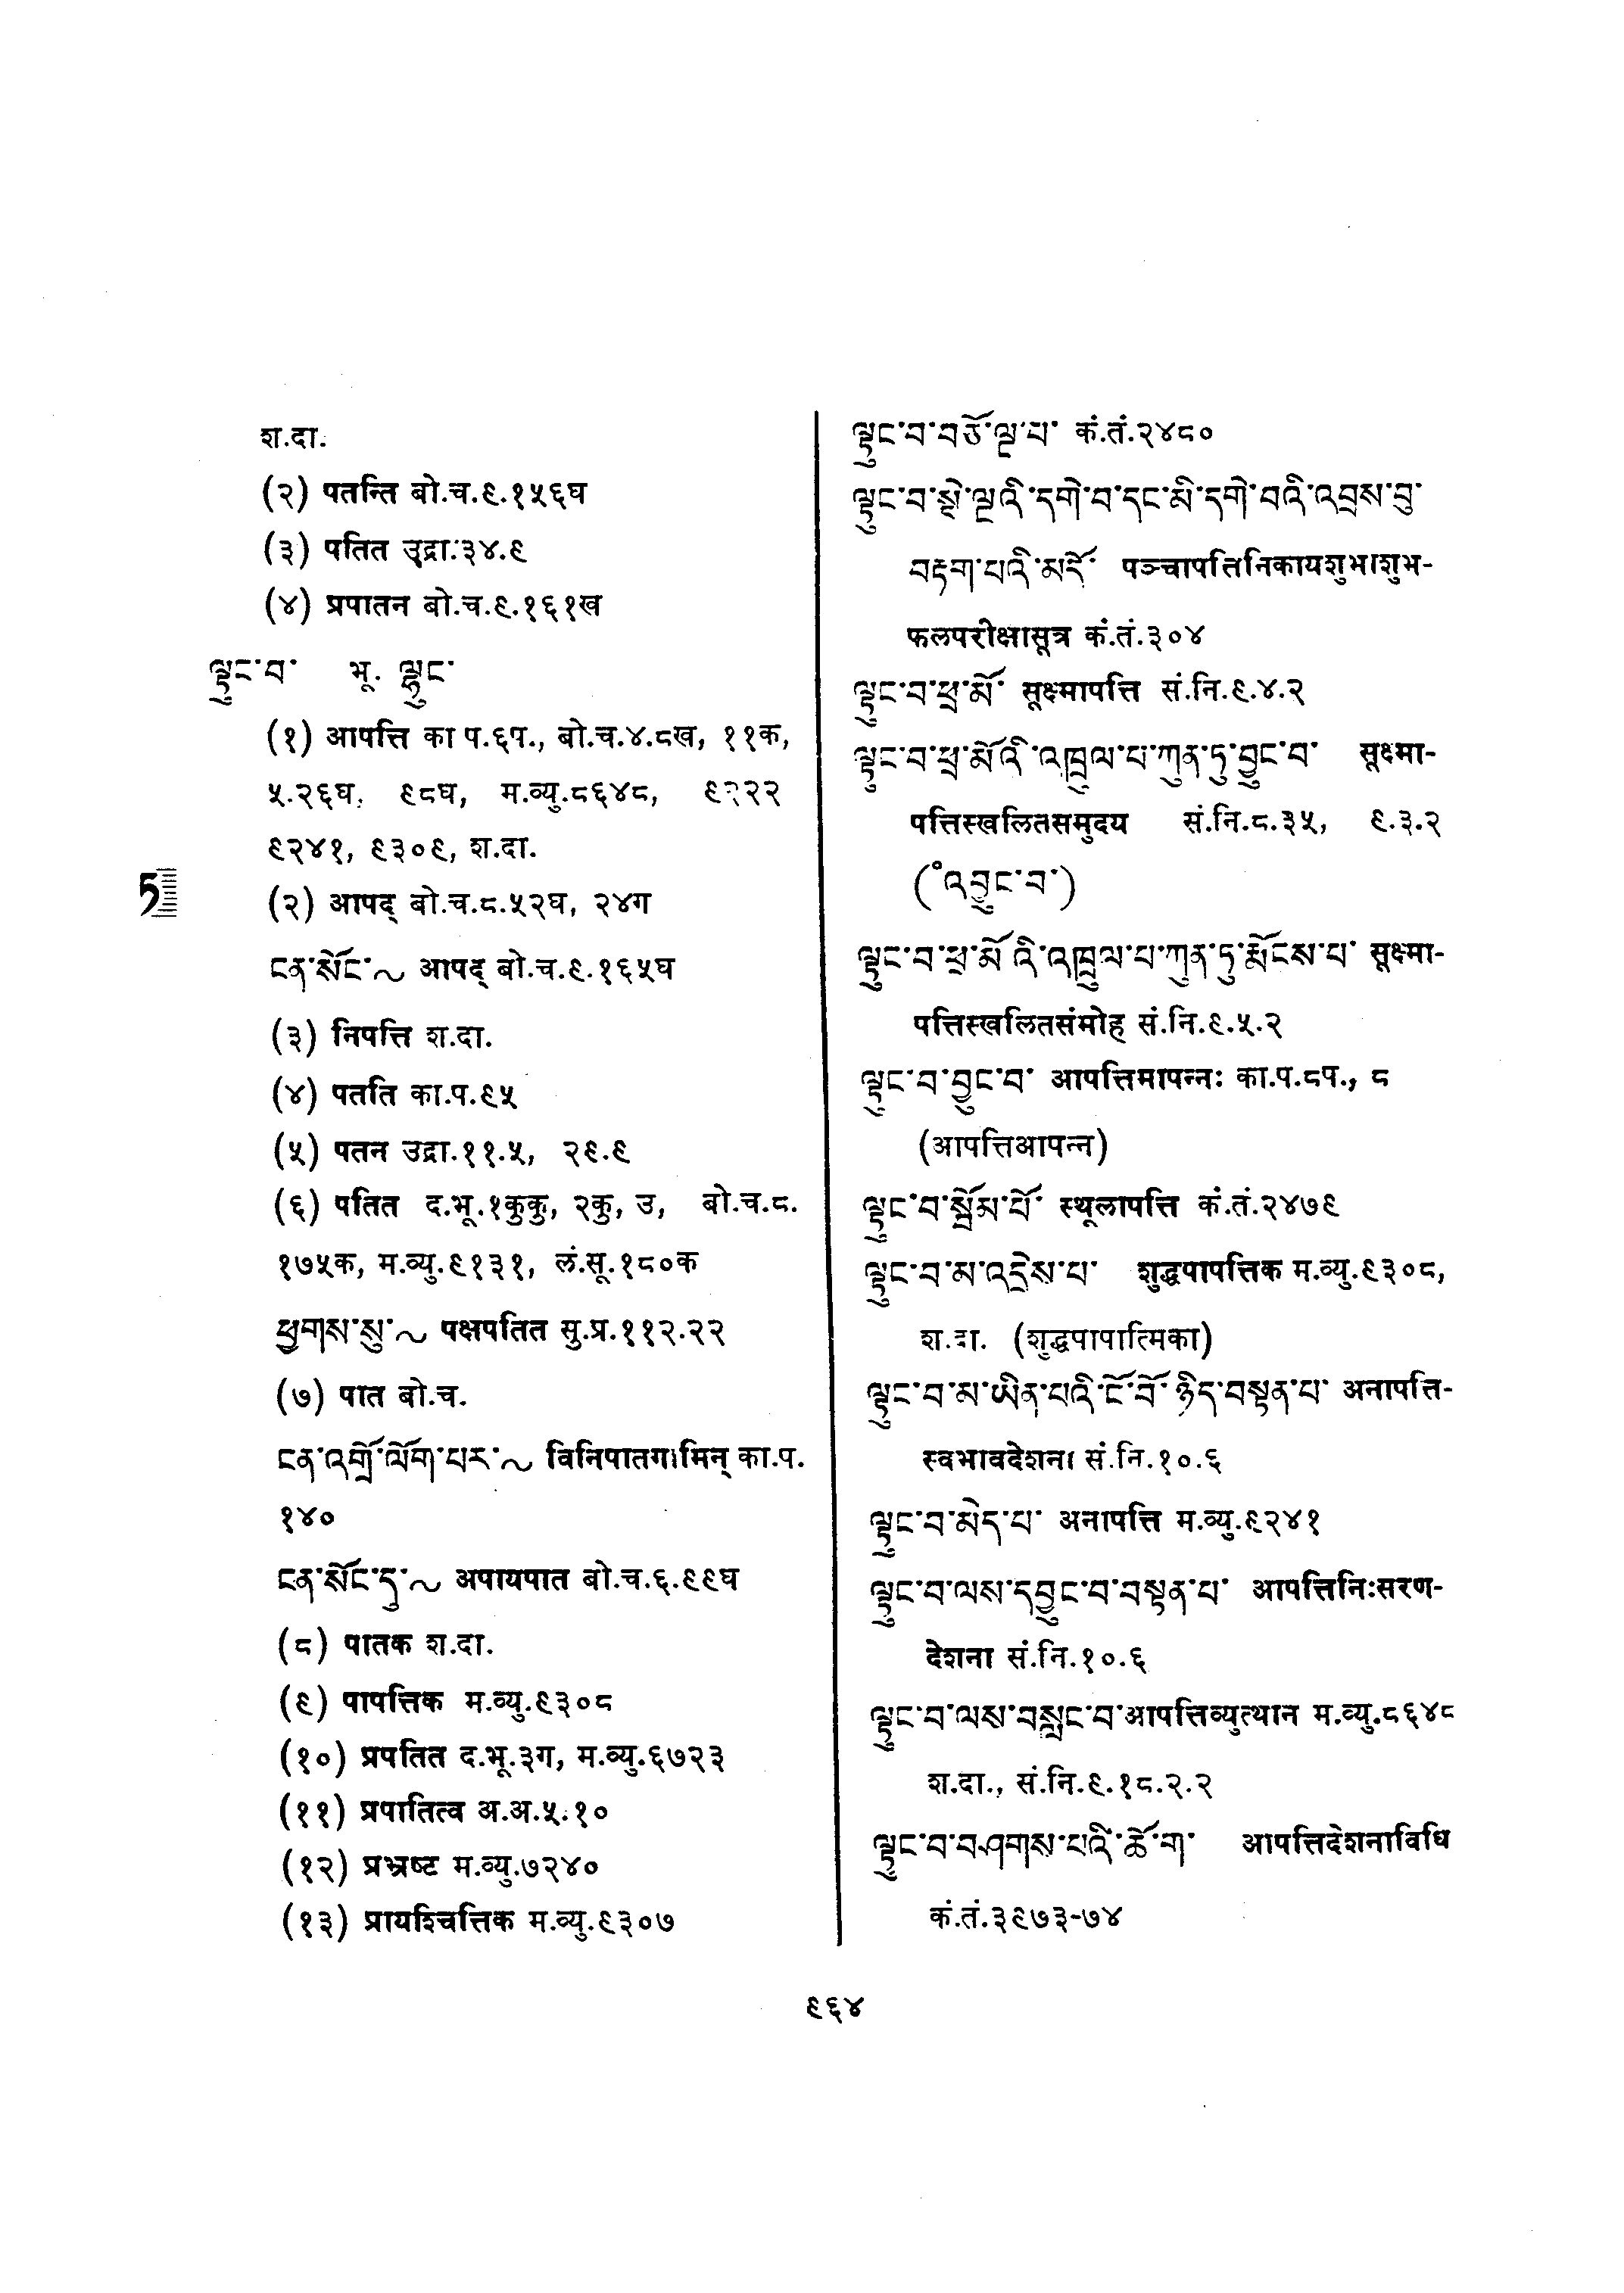 श.दा.
(२) पतन्ति बो.च.९.१५६घ
(३) पतित उद्रा.३४.९
(४) प्रपातन बो.च.९.१६१ख
ལྟུང་བ་ भू. ལྷུང་
(१) आपत्ति का प.६प., बो.च.४.८ख, ११क,
५.२६घ, ९८घ, म.व्यु.८६४८, ९२२२
९२४१, ९३०९, श.दा.
ད
(२) आपद् बो.च.८.५२घ, २४ग
ངན་སོང་~ आपद् बो.च.९.१६५घ
(३) निपत्ति श.दा.
(४) पतति का.प.९५
(५) पतन उद्रा.११.५, २९.९
(६) पतित द.भू.१कुकु, २कु, उ, बो.च.८.
१७५क, म.व्यु.९१३१, लं.सू.१८०क
ཕྱགས་སུ་~ पक्षपतित सु.प्र.११२.२२
(७) पात बो.च.
ངན་འགྲོ་ལོག་པར་~ विनिपातगामिन् का.प.
१४०
ངན་སོང་དུ་~ अपायपात बो.च.६.९९घ
(८) पातक श.दा.
(९) पापत्तिक म.व्यु.९३०८
(१०) प्रपतित द.भू.३ग, म.व्यु.६७२३
(११) प्रपातित्व अ.अ.५.१०
(१२) प्रभ्रष्ट म.व्यु.७२४०
(१३) प्रायश्चित्तिक म.व्यु.९३०७
ལྟུང་བ་བཅོ་ལྔ་པ་ कं.तं.२४८०
ལྟུང་བ་སྡེ་ལྔའི་དགེ་བ་དང་མི་དགེ་བའི་འབྲས་བུ་
བརྟག་པའི་མདོ་ पञ्चापत्तिनिकायशुभाशुभ-
फलपरीक्षासूत्र कं.तं.३०४
ལྟུང་བ་ཕྲ་མོ་ सूक्ष्मापत्ति सं.नि.९.४.२
ལྟུང་བ་ཕྲ་མོའི་འཁྲུལ་པ་ཀུན་ཏུ་བྱུང་བ་ सूक्ष्मा-
पत्तिस्खलितसमुदय सं.नि.८.३५, ९.३.२
(°འི་བྱུང་བ་)
ལྟུང་བ་ཕྲ་མོའི་འཁྲུལ་པ་ཀུན་ཏུ་རྨོངས་པ་ सूक्ष्मा-
पत्तिस्खलितसंमोह सं.नि.९.५.२
ལྟུང་བ་བྱུང་བ་ आपत्तिमापन्नः का.प.८प., ८
(आपत्तिआपन्न)
ལྟུང་བ་སྦོམ་པོ་ स्थूलापत्ति कं.तं.२४७९
ལྟུང་བ་མ་འདྲེས་པ་ शुद्धपापत्तिक म.व्यु.९३०८,
श.दा. (शुद्धपापात्मिका)
ལྟུང་བ་མ་ཡིན་པའི་ངོ་བོ་ཉིད་བསྟན་པ་ अनापत्ति-
स्वभावदेशना सं.नि.१०.६
ལྟུང་བ་མེད་པ་ अनापत्ति म.व्यु.९२४१
ལྟུང་བ་ལས་དབྱུང་བ་བསྟན་པ་ आपत्तिनिःसरण-
देशना सं.नि.१०.६
ལྟུང་བ་ལས་བསླང་བ་ आपत्तिव्युत्थान म.व्यु.८६४८
श.दा., सं.नि.९.१८.२.२
ལྟུང་བ་བཤགས་པའི་ཆོ་ག་ आपत्तिदेशनाविधि
कं.तं.३९७३-७४
९६४